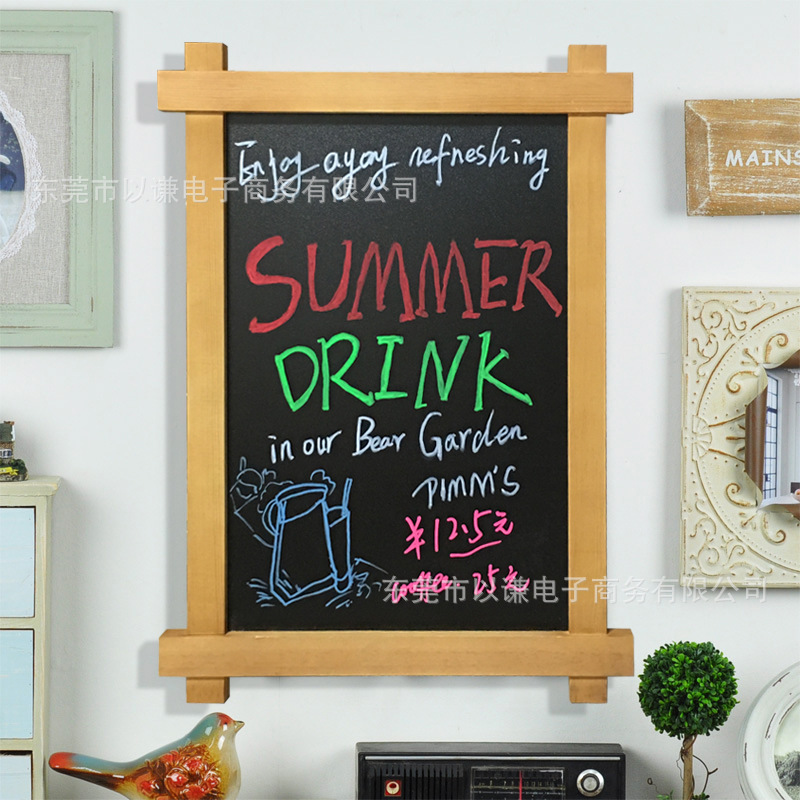 Enjoy ayoy refreshing
东莞市以谦电子商务有限公司
SUMMER
DRINK
in our Bear Garden
PIMM'S
¥12.5元
coffee. 25元
东莞市以谦电子商务有限公司
MAINS